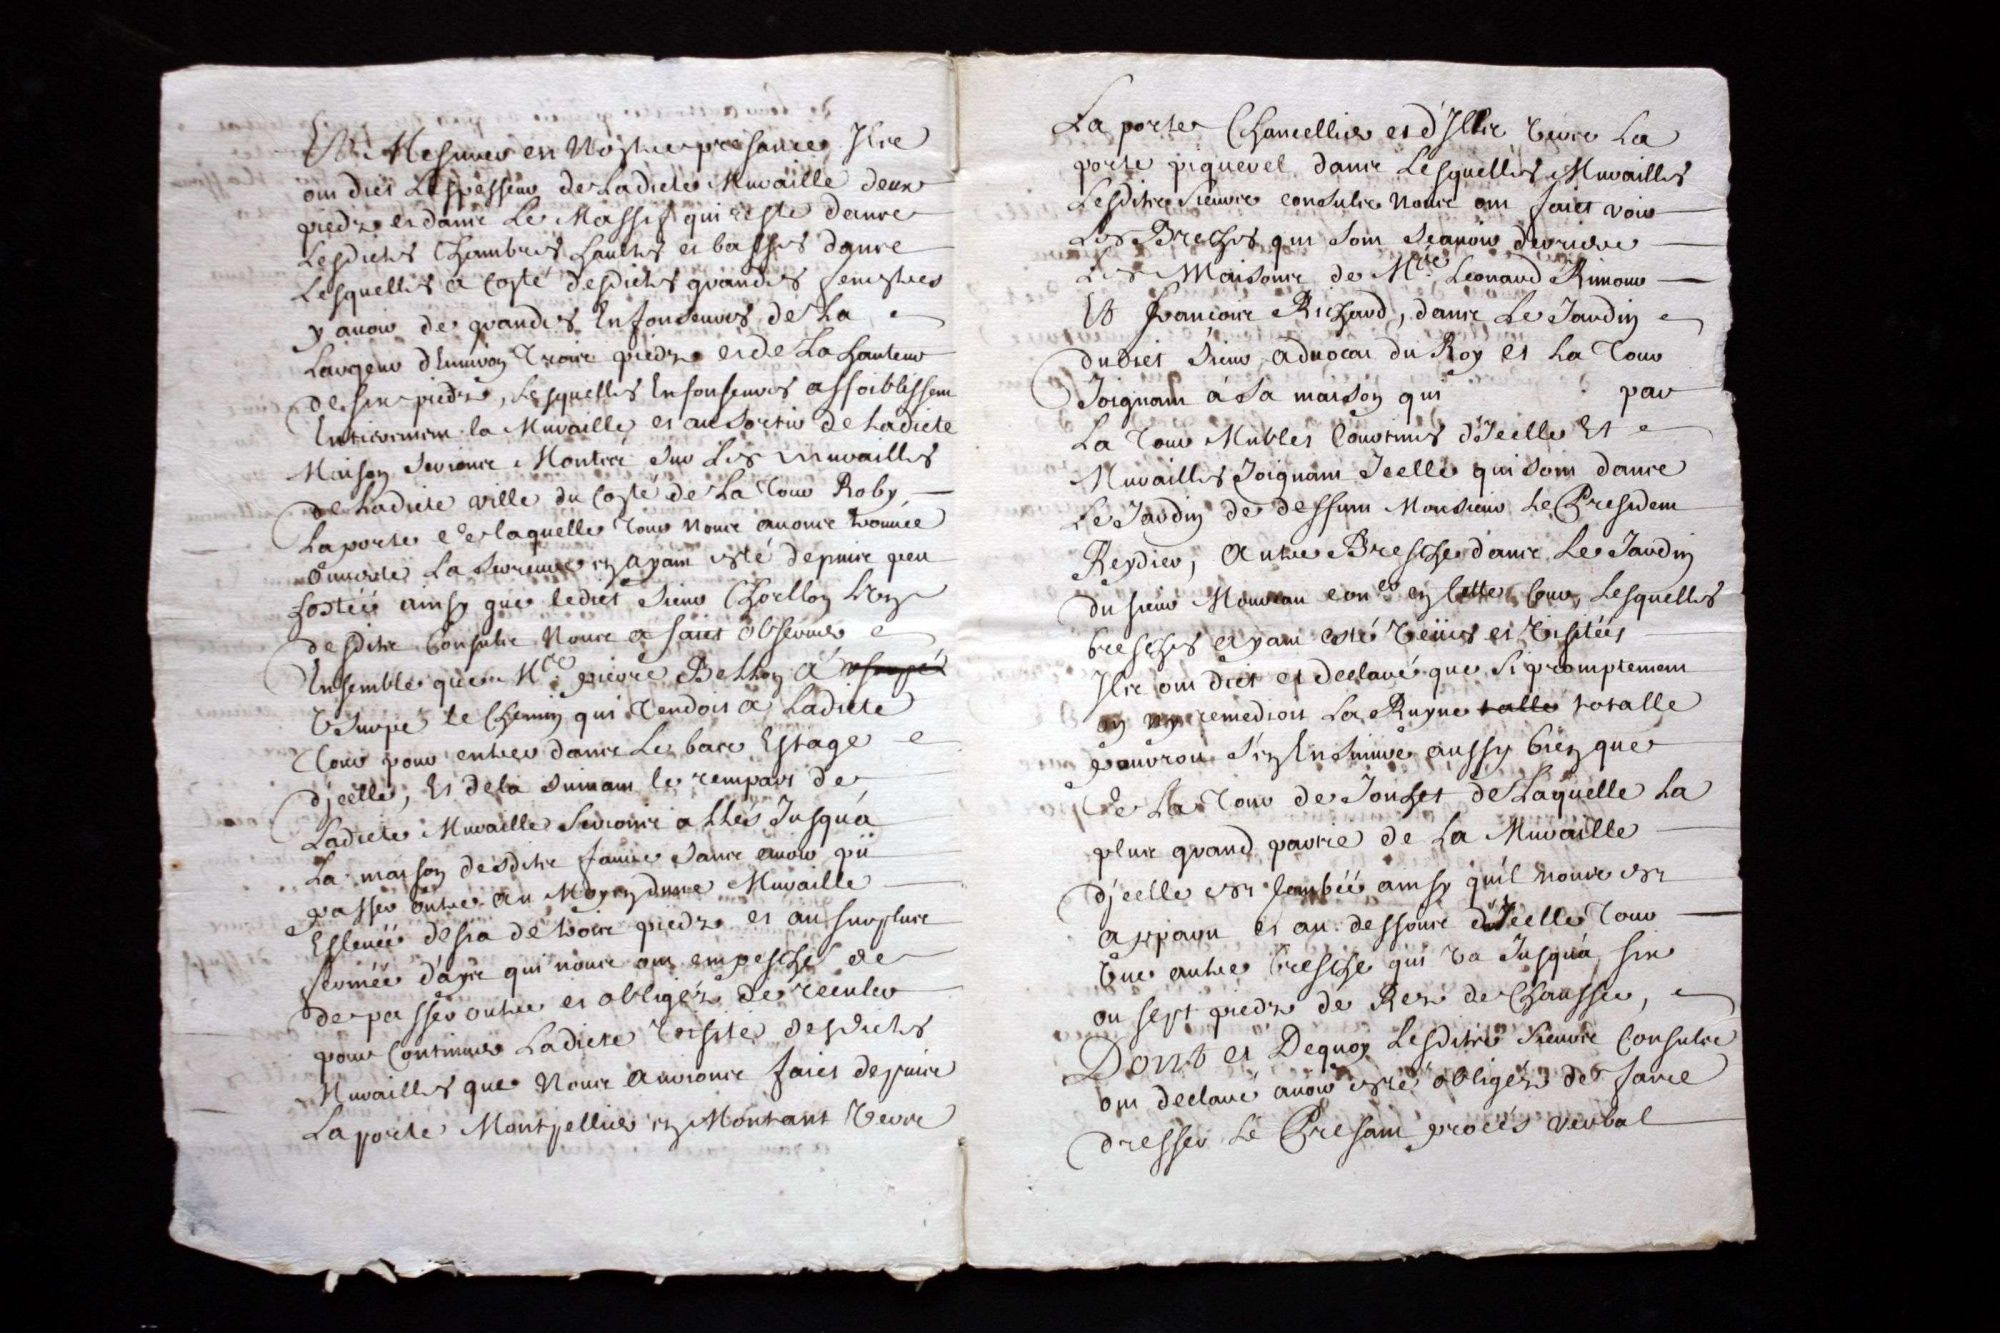 Et Mesuré en Nostre presance, Ilz
ont dict L'espesseur de Ladicte Muraille deux
piedz et dans Le Massif qui reste dans
Lesdictes Chambres haultes et basses dans
Lesquelles a Costé desdictes grandes fenestres
y avoir de grandes Enfonseures de La
Largeur d'Environ Trois piedz et de La hauteur
de six piedz, Lesquelles Enfonseures affoiblissent
Entierement la Muraille et au sortir de Ladicte
Maison Serions Montés sur Les murailles
de Ladicte ville du Costé de La Tour Roby
La porte de laquelle Tour nous avons trouvée
Ouverte La Serrure en ayant esté depuis peu
hostée ainsy que ledict sieur Chorllon L'un
desditz Consulz Nous a faict observer
Ensemble que Mre pierre Bellon a usurpé
Usurpé le Chemin qui Tendoit a Ladicte
Tour pour entrer dans Le bas Estage
d'jcelle, Et de la suivant le rempart de
Ladicte Muraille Serions allés Jusqu'a
La maison desditz sans avoir pü
passer outre au Moyen d'une Muraille
Eslevée desja de trois piedz et au surplus
fermée d'ayz qui nous ont empesché de
de passer outre et obligéz de reculer
pour Continuer Ladicte Visite desdictes
Murailles que Nous aurions faict depuis
La porte Montpellier en Montant Vers
La porte Chancellier et d'Illec Vers La
porte piquerel dans Lesquelles Murailles
Lesditz Sieurs consulz Nous ont faict voir
Les Breches qui sont Scavoir derriere
Les Maisons de Mre Leonard Rimour
Et François Richard, dans Le Jardin
dudict Sieur advocat du Roy et La Tour
Joignant à sa maison qui par
La Tour Mublet Courtines d'Icelle Et
Murailles Joignant Icelle qui sont dans
Le Jardin de deffunt Monsieur Le President
Reydier, Autre Bresche dans Le Jardin
du sieur Moureau coner en Cette Cour, Lesquelles
bresches ayant esté Veües et Visitées
Ilz ont dict et declaré que si promptement
on n'y remedioit La Ruyne talle totalle
pourroit s'en Ensuivre aussy bien que
de La Tour de Jouhet de Laquelle La
plus grand partie de La Muraille
d'jcelle est tombée ainsy qu'il nous est
apparu et au dessous d'Icelle Tour
Une autre bresche qui va Jusqu'a six
ou sept piedz de Rez de Chaussée,
Dont et Dequoy Lesditz Sieurs Consulz
ont declaré avoir esté obligéz de faire
dresser Le Presant procés verbal